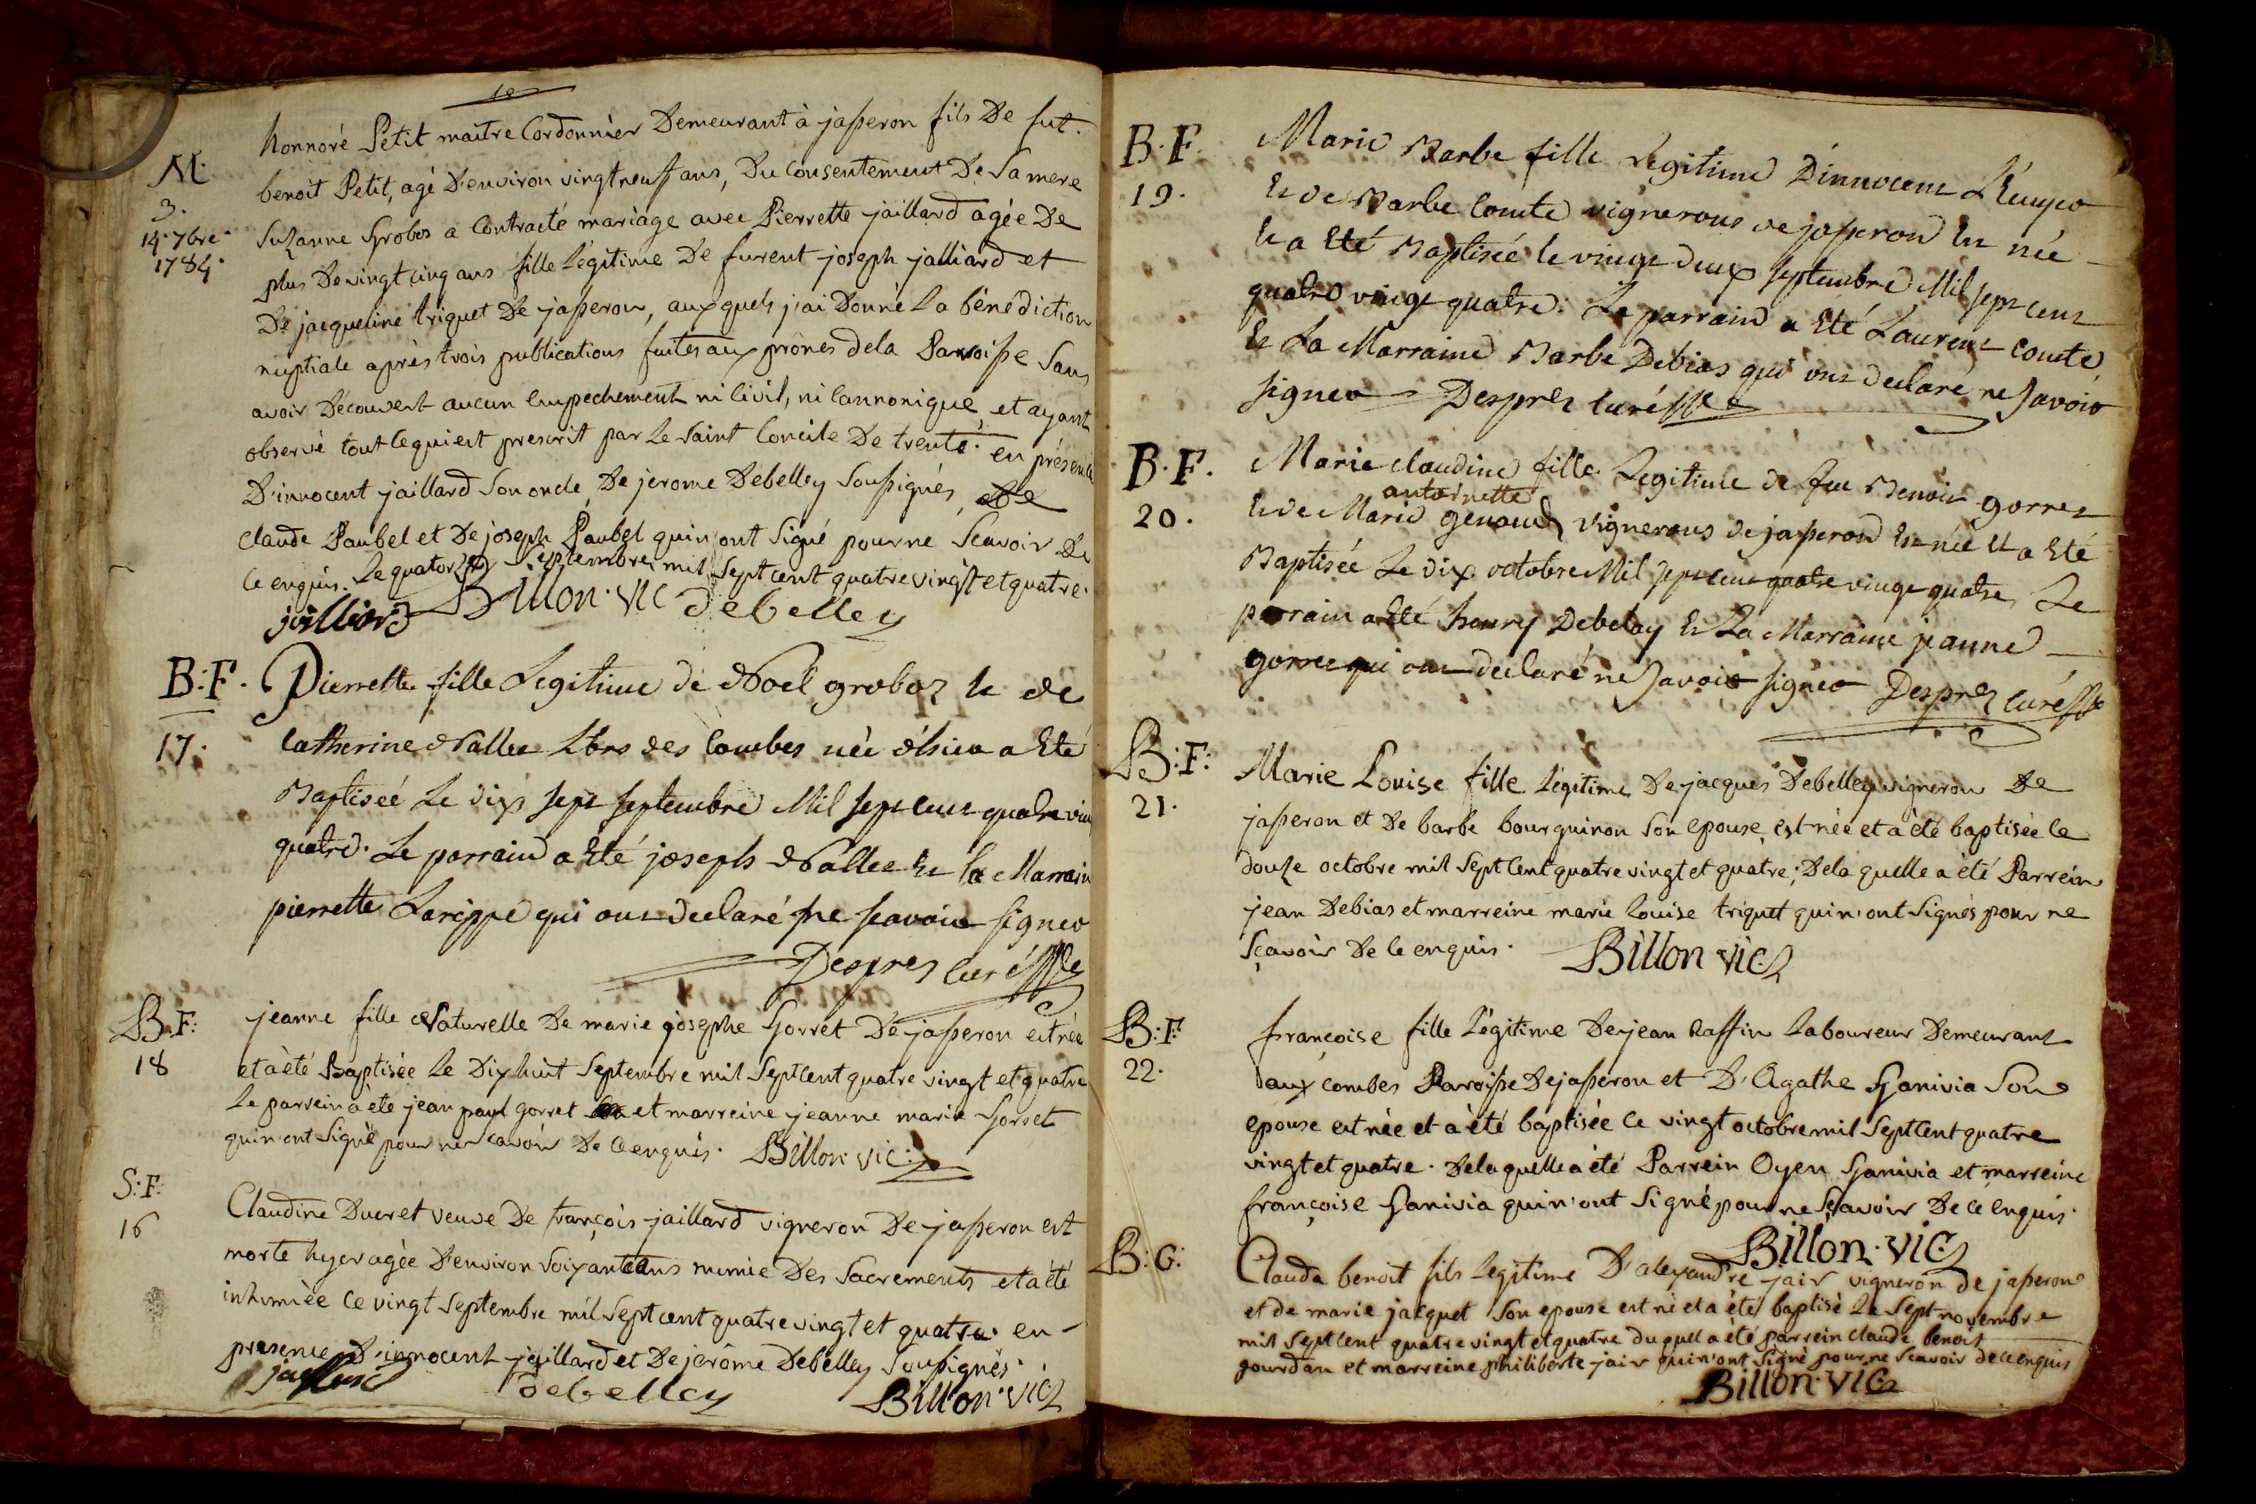 M.
3.
14. 7bre.
1784.
honnoré Petit maitre Cordonnier Demeurant à jasseron fils De fut.
benoit Petit, agé D'environ vingt neuf ans, Du Consentement De Sa mere
Suzanne Grobos a Contracté mariage avec Pierrette jaillard agée De
plus De vingt cinq ans fille Légitime De furent joseph jailliard et
De jacqueline triquet De jasseron, auxquels jai Donné La bénédiction
nuptiale après trois publications faites aux prônes dela Paroisse Sans
avoir Découvert aucun Empechement ni Civil, ni Cannonique, et ayant
observé tout ce qui est prescrit par Le Saint Concile De trente. en présence
D'innocent jaillard Son oncle, De jerome Debelley Soussignés, et De
Claude Paubel et De joseph Paubel qui n'ont Signé pour ne Scavoir De
Ce enquis. Le quatorze Septembre mil Sept cent quatre vingt et quatre.
jailliard Billon. vic debelley
B: F.
17.
Pierrette fille Legitime de Noël groboz et de
Catherine Vallee des Combes née d'hier a Eté
Baptiseé Le dix sept septembre Mil sept cent quatre vin
quatre. Le parrain a Eté joseph Vallee Et la Marrain
pierrette qui ont declaré ne scavoir signer
Desprez curé
B. F:
18
jeanne fille Naturelle De marie josephe Gorret De jasseron est née
et à été Baptisée Le Dix huit Septembre mil Sept cent quatre vingt et quatre
Le parrein à été jean paul gorret et marreine jeanne marie Gorret
qui n'ont Signé pour ne Scavoir De Ce enquis. Billon. vic.
S: F:
16
Claudine Ducret veuve De françois jaillard vigneron De jasseron est
morte hyer agée D'environ Soixante ans munie Des Sacrements et à été
inhumée Ce vingt Septembre mil Sept cent quatre vingt et quatre. en
presence D'innocent jaillard et De jerôme Debelley Soussignés.
debelley Billon. vic
B. F.
19.
Marie Barbe fille Legitime D'innocent
Et de Barbe Comte vignerons de jasseron Est née
Et a Eté Baptisée le vingt deux septembre Mil sept cent
quatre vingt quatre. Le parrain a Eté Laurent Comte
Et La Marraine Barbe Debias qui ont declaré ne Savoir
signer Desprez curé
B. F.
20.
Marie claudine fille Legitime de feu Benoit gorret
antoinette
Et de Marie genoud vignerons de jasseron Est née Et a Eté
Baptisée Le dix octobre Mil sept cent quatre vingt quatre, Le
parrain a Eté henry Debelay Et La Marraine jeanne
gorret qui ont declaré ne Savoir signer Desprez curé
B: F:
21.
Marie Louise fille Légitime De jacques Debelley vigneron De
jasseron et De barbe bourguinon Son epouse est née et à été baptisée le
douze octobre mil Sept Cent quatre vingt et quatre; De la quelle a été Parrein
jean Debias et marreine marie Louise triquet qui n'ont Signés pour ne
Sçavoir De Ce enquis. Billon vic.
B: F:
22.
françoise fille Légitime De jean Raffin Laboureur Demeurant
aux combes Paroisse De jasseron et D'Agathe Ganivia Son
epouse est née et à été baptisée Ce vingt octobre mil Sept Cent quatre
vingt et quatre. De la quelle à été Parrein Oyen Ganivia et marreine
françoise Ganivia qui n'ont Signé pour ne Sçavoir De Ce enquis.
Billon. vic.
B: G:
Claude benoit fils Legitime D'alexandre jair vigneron de jasseron
et de marie jacquet Son epouse est né et a été baptisé Le Sept novembre
mil Sept Cent quatre vingt et quatre du quel a été parrein claude benoit
gourdan et marreine philiberte jair qui n'ont Signé pour ne Scavoir de ce enquis
Billon. vic.